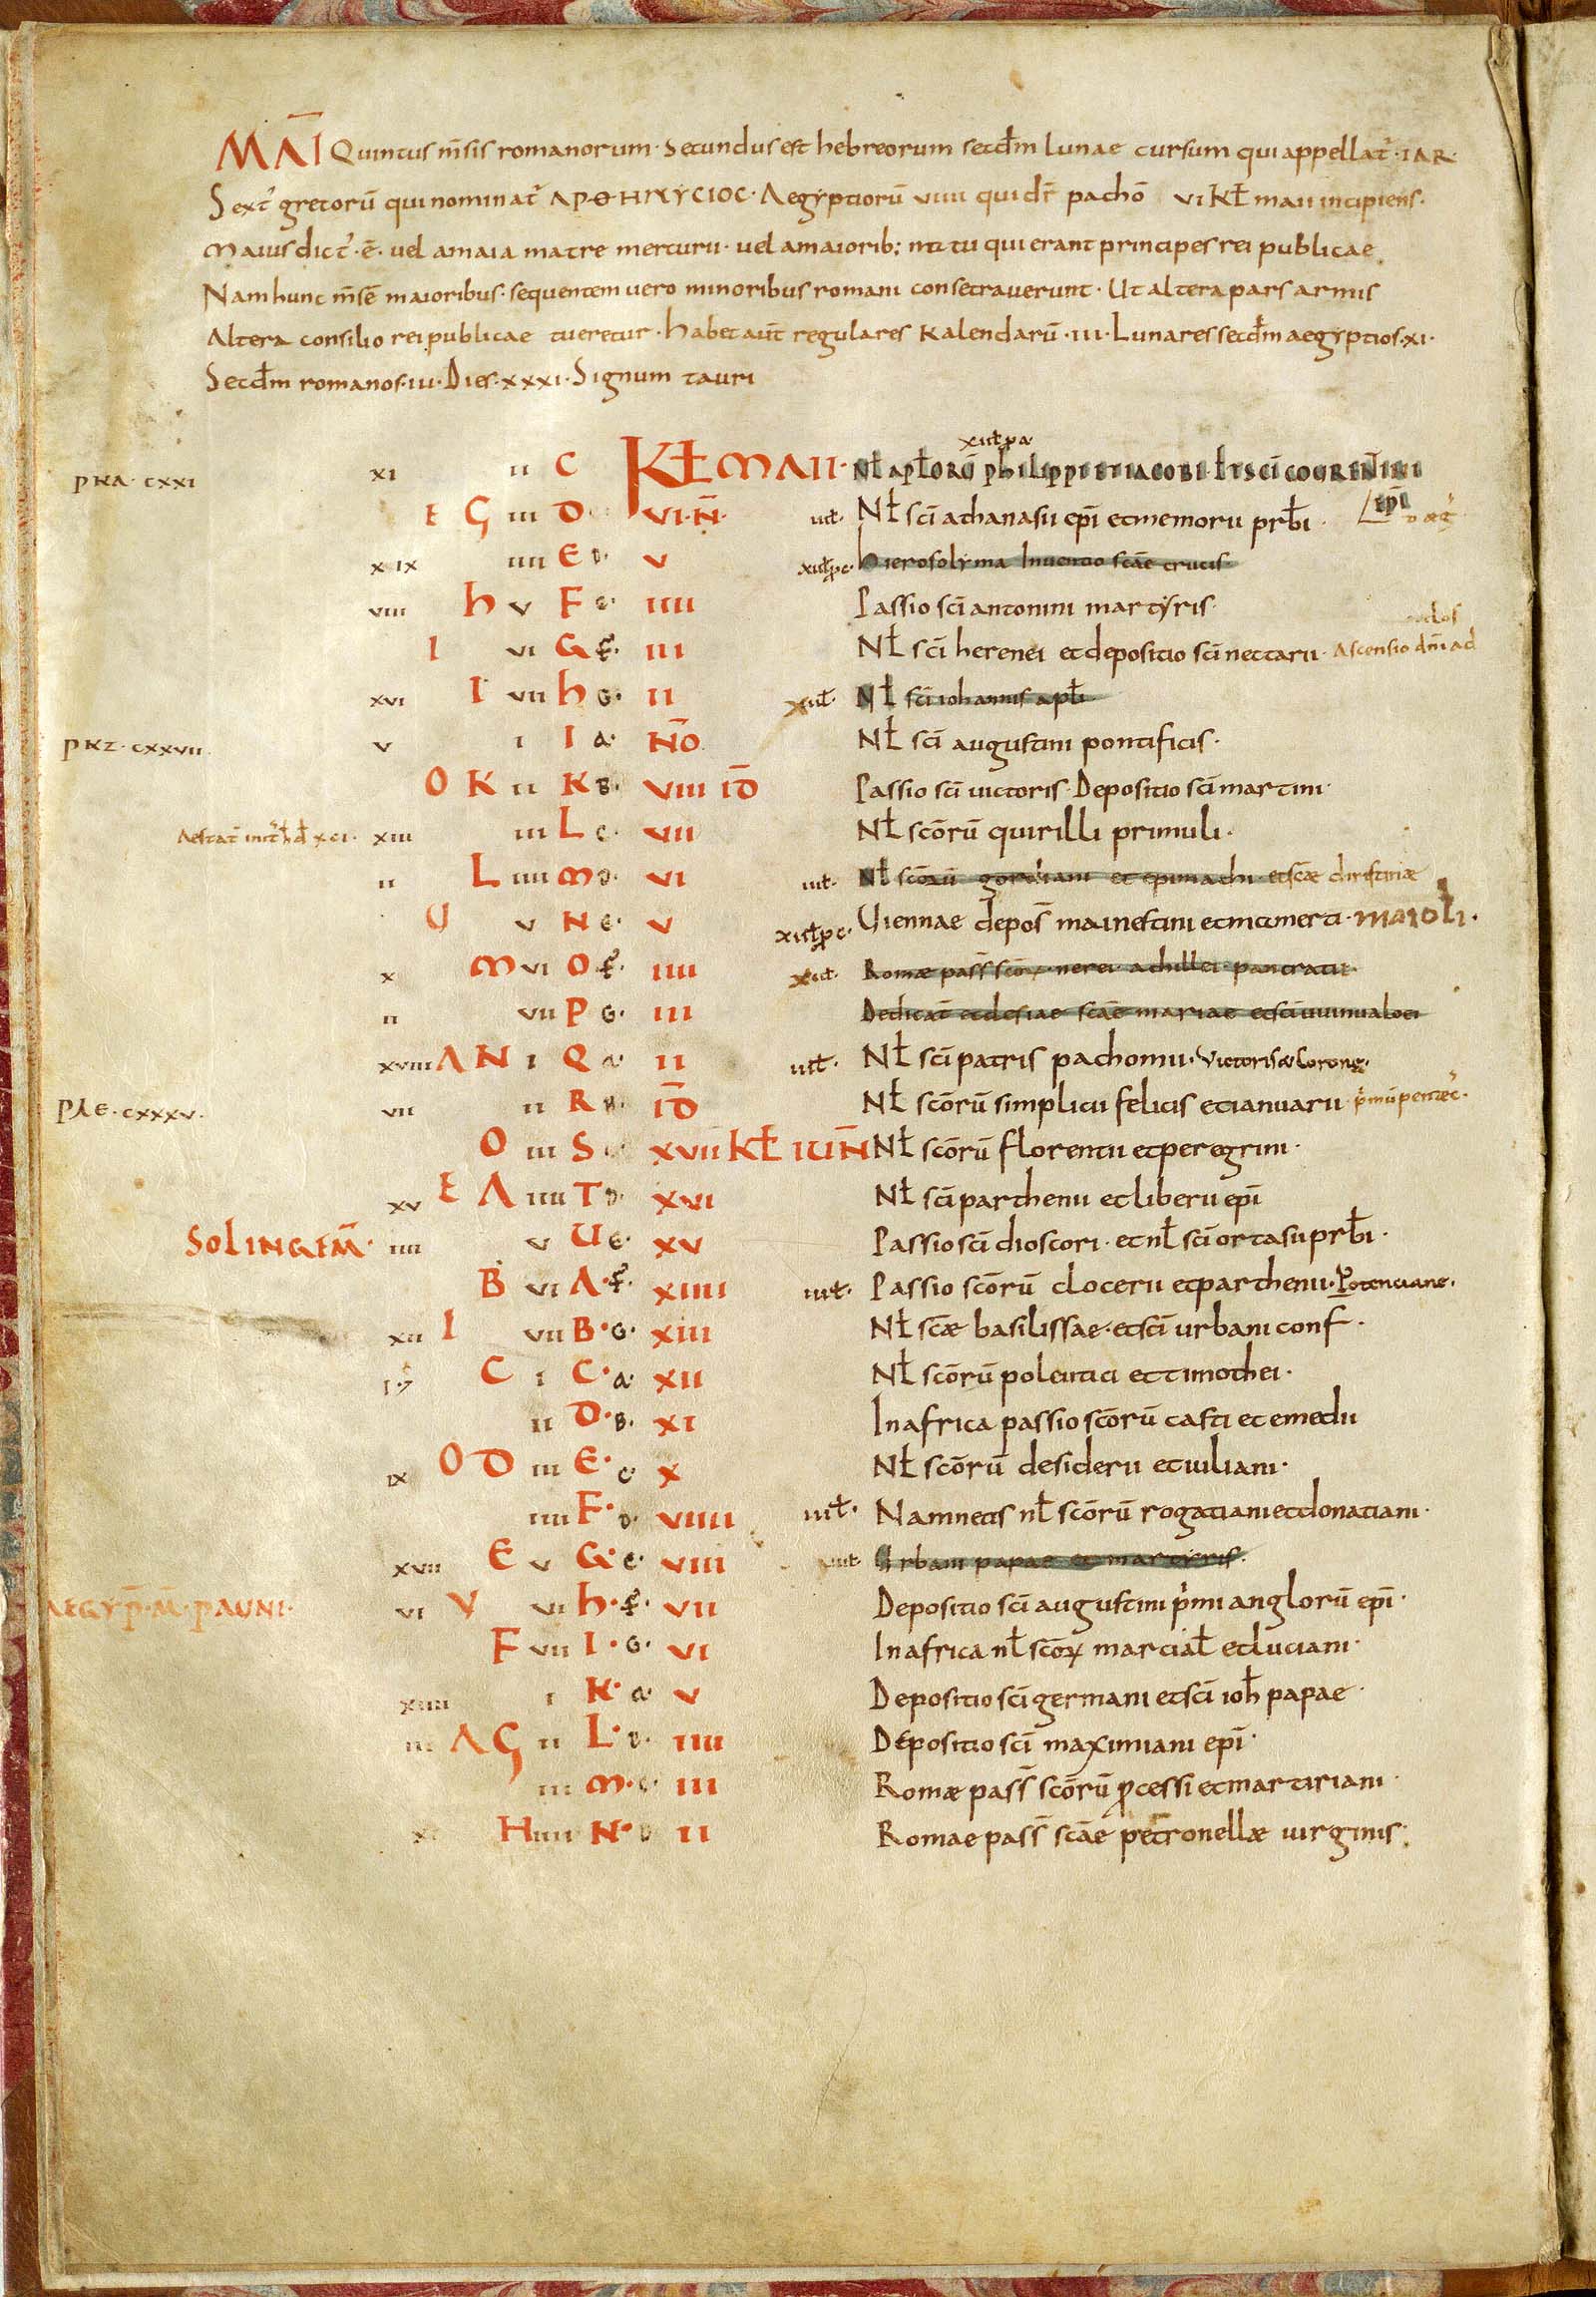 MAI Quintus m̄sis romanorum· Secundus est hebreorum secđm lunae cursum qui appellat̉· IAR·
Sext̉ grecorū qui nominat̉ ΑΡΘΗΜΥϹΙΟϹ· Aegyptiorū viiii qui dr̄ pachō vi Kł maii incipiens·
Maius dict̉· ē· vel a maia matre mercurii· vel a maiorib; natu qui erant principes rei publicae
Nam hunc m̄sē maioribus· sequentem uero minoribus romani consecraverunt· Ut altera pars armis
Altera consilio rei publicae tueretur· habet aūt regulares Kalendarū· iii· Lunares secđm aegyptios· xi·
Secđm romanos· iii· Dies· xxxi· Signum tauri
ΡΚΑ· CXXI xi ii C Kł MAII· Nł apłorū philippi et iacobi·
E G iii D· VI· N̄· iiił· Nł sc̄i athanasii ep̄i et memorii prb̄i·
xix iiii E D· V hierosolyma Inuentio sc̄ae crucis
viii h v F E· IIII Passio sc̄i antonini martyris·
I vi G F· III Nł sc̄i herenei et depositio sc̄i nectarii· Ascensio dn̄i ad
xvi I vii h G· II Nł sc̄i iohannis apłi
ΡΚΖ· CXXVII v i I A· N̄O Nł sc̄i augustini pontificis·
O K ii K B· VIII ID̄ Passio sc̄i uictoris· Depositio sc̄i martini·
xiii iii L C· VII Nł sc̄orū quirilli primuli·
ii L iiii M D· VI iiił· Nł sc̄orū gordiani et epimachi et sc̄ae christinae
U v N E· V Viennae depos̄ mainestini et mitimerti· maioli·
x M vi O F· IIII Romæ pass̄ sc̄orꝝ nerei· achillei· pancratii·
ii vii P G· III Dedicat̄ ecclesiae sc̄ae mariae et sc̄i uuinualoei
xviii A N i Q A· II iiił· Nł sc̄i patris pachomii· Victoris & Corone·
ΡΛΕ· CXXXV· vii ii R B· ID̄ Nł sc̄orū simplicii felicis et ianuarii·
O iii S C· XVII Kł IUN̄ Nł sc̄orū florentii et peregrini·
xv E A iiii T D· XVI Nł sc̄i parthenii et liberii ep̄i
SOL IN GEM̄· iiii v U E· XV Passio sc̄i dioscori· et nł sc̄i ortasii prb̄i·
B vi A· F· XIIII iiił· Passio sc̄orū cloceru et parthenii· Potenciane·
xii I vii B· G· XIII Nł sc̄ae basilissae· et sc̄i urbani conf·
i C i C· A· XII Nł sc̄orū poleutici et timothei·
ii D· B· XI In africa passio sc̄orū casti et emedii
ix O D iii E· C· X Nł sc̄orū desiderii et iuliani·
iiii F· D· VIIII iiił· Namnetis nł sc̄orū rogatiani et donatiani·
xvii E v G· E· VIII Urbani papae et martyris·
AEGYP̄· M̄· PAUNI· vi V vi h· F· VII Depositio sc̄i augustini p̉mi anglorū ep̄i·
F vii I· G· VI In africa nł sc̄orꝝ marciał et luciani·
xiiii i K· A· V Depositio sc̄i germani et sc̄i ioh̄ papae·
iii A G ii L· B· IIII Depositio sc̄i maximiani ep̄i·
iii M· C· III Romæ pass̄ sc̄orū ꝓcessi et martiriani·
xi H iiii N· D II Romae pass̄ sc̄ae petronellæ uirginis·